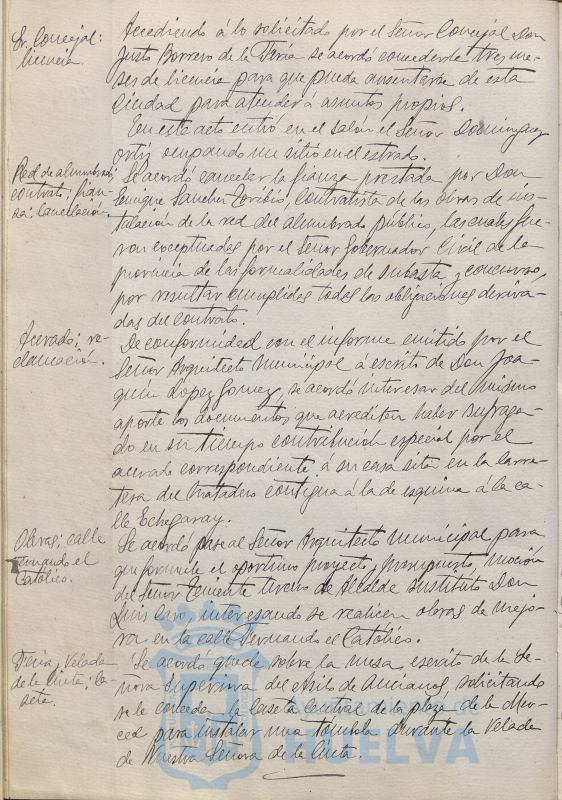 Sr. Concejal:
licencia.
Accediendo á lo solicitado por el Señor Concejal Don
Justo Borrero de la Feria se acordó concederle tres me-
ses de licencia para que pueda ausentarse de esta
Ciudad para atender á asuntos propios.
En este acto entró en el salón el Señor Domínguez
Ortiz ocupando un sitio en el estrado.
Red de alumbrado;
contrato; fian-
za; cancelación.
Se acordó cancelar la fianza prestada por Don
Enrique Sanchez Toribio, contratista de las obras de ins-
talación de la red del alumbrado público, las cuales fue-
ron exceptuadas por el Señor Gobernador Civil de la
provincia de las formalidades de subasta y concurso,
por resultar cumplidas todas las obligaciones deriva-
das del contrato.
Acerado; re-
clamación.
De conformidad con el informe emitido por el
Señor Arquitecto Municipal á escrito de Don Joa-
quín Lopez Gomez, se acordó interesar del mismo
aporte los documentos que acrediten haber sufraga-
do en su tiempo contribución especial por el
acerado correspondiente á su casa sita en la Carre-
tera del Matadero contigua á la de esquina á la ca-
lle Echegaray.
Obras; calle
Fernando el
Católico.
Se acordó pase al Señor Arquitecto Municipal para
que formule el oportuno proyecto y presupuesto, moción
del Señor Teniente tercero de Alcalde sustituto Don
Luis Caro, interesando se realicen obras de mejo-
ra en la calle Fernando el Católico.
Feria; Velada
de la Cinta; ca-
seta.
Se acordó quede sobre la mesa escrito de la Se-
ñora Superiora del Asilo de Ancianos, solicitando
se le conceda la caseta central de la plaza de la Mer-
ced para instalar una tómbola durante la Velada
de Nuestra Señora de la Cinta.
HUELVA